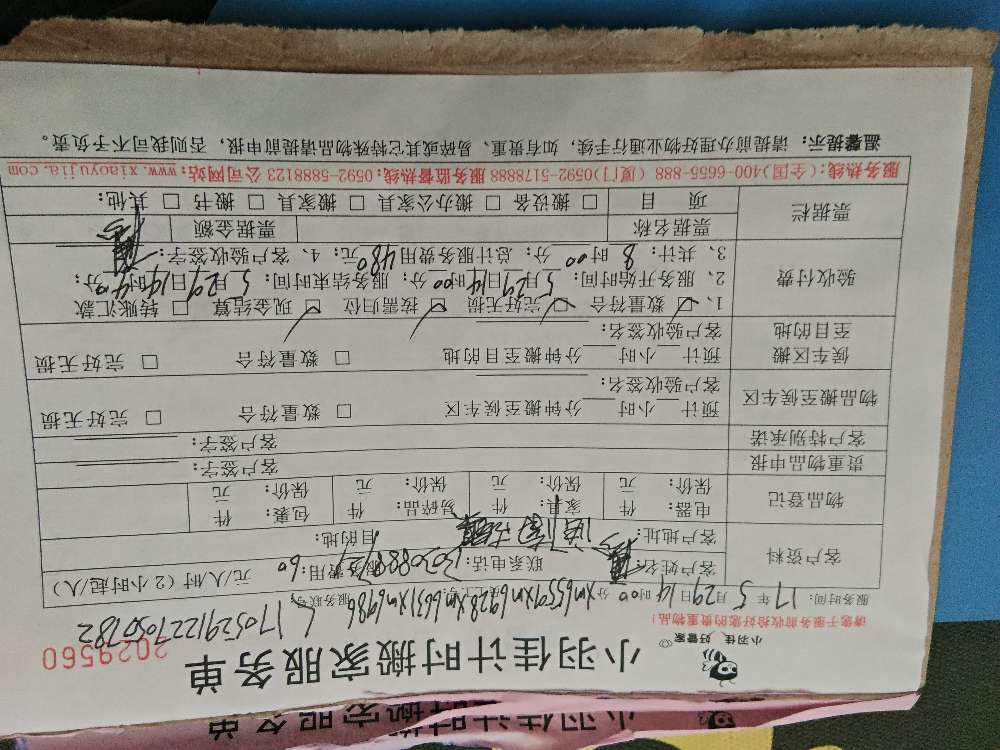 小羽佳计时搬家服务单
小羽佳 好管家
2029560
请您于服务前收拾好您的贵重物品!
1705291227050782
服务时间: 17年5月29日14时00 xm6559 xm6928 xm6631 xm6986 服务联号:
客户资料 客户姓名: 联系电话: 服务费用: 60 元/人/时 (2小时起/人)
客户地址: 目的地:
物品登记 电器: 件 家具: 件 易碎品: 件 包裹: 件
保价: 元 保价: 元 保价: 元 保价: 元
贵重物品申报 客户签字:
客户特别承诺 客户签字:
物品搬至候车区 预计 小时 分钟搬至候车区 □ 数量符合 □ 完好无损
客户验收签名:
候车区搬至目的地 预计 小时 分钟搬至目的地 □ 数量符合 □ 完好无损
客户验收签名:
验收付费 1、☑ 数量符合 ☑ 完好无损 ☑ 按需归位 ☑ 现金结算 □ 转账汇款
2、服务开始时间: 5月29日14时00分; 服务结束时间: 5月29日14时40分;
3、共计: 8时00分; 总计服务费用480元; 4、客户验收签字:
票据栏 票据名称 票据金额
项 目 □ 搬设备 □ 搬办公家具 □ 搬家具 □ 搬书 □ 其他:
服务热线:(全国)400-6655-888 (厦门)0592-5178888 服务监督热线:0592-5888123 公司网站:www.xiaoyujia.com
温馨提示: 请提前办理好物业通行手续, 如有贵重、易碎或其它特殊物品请提前申报, 否则我司不予负责。